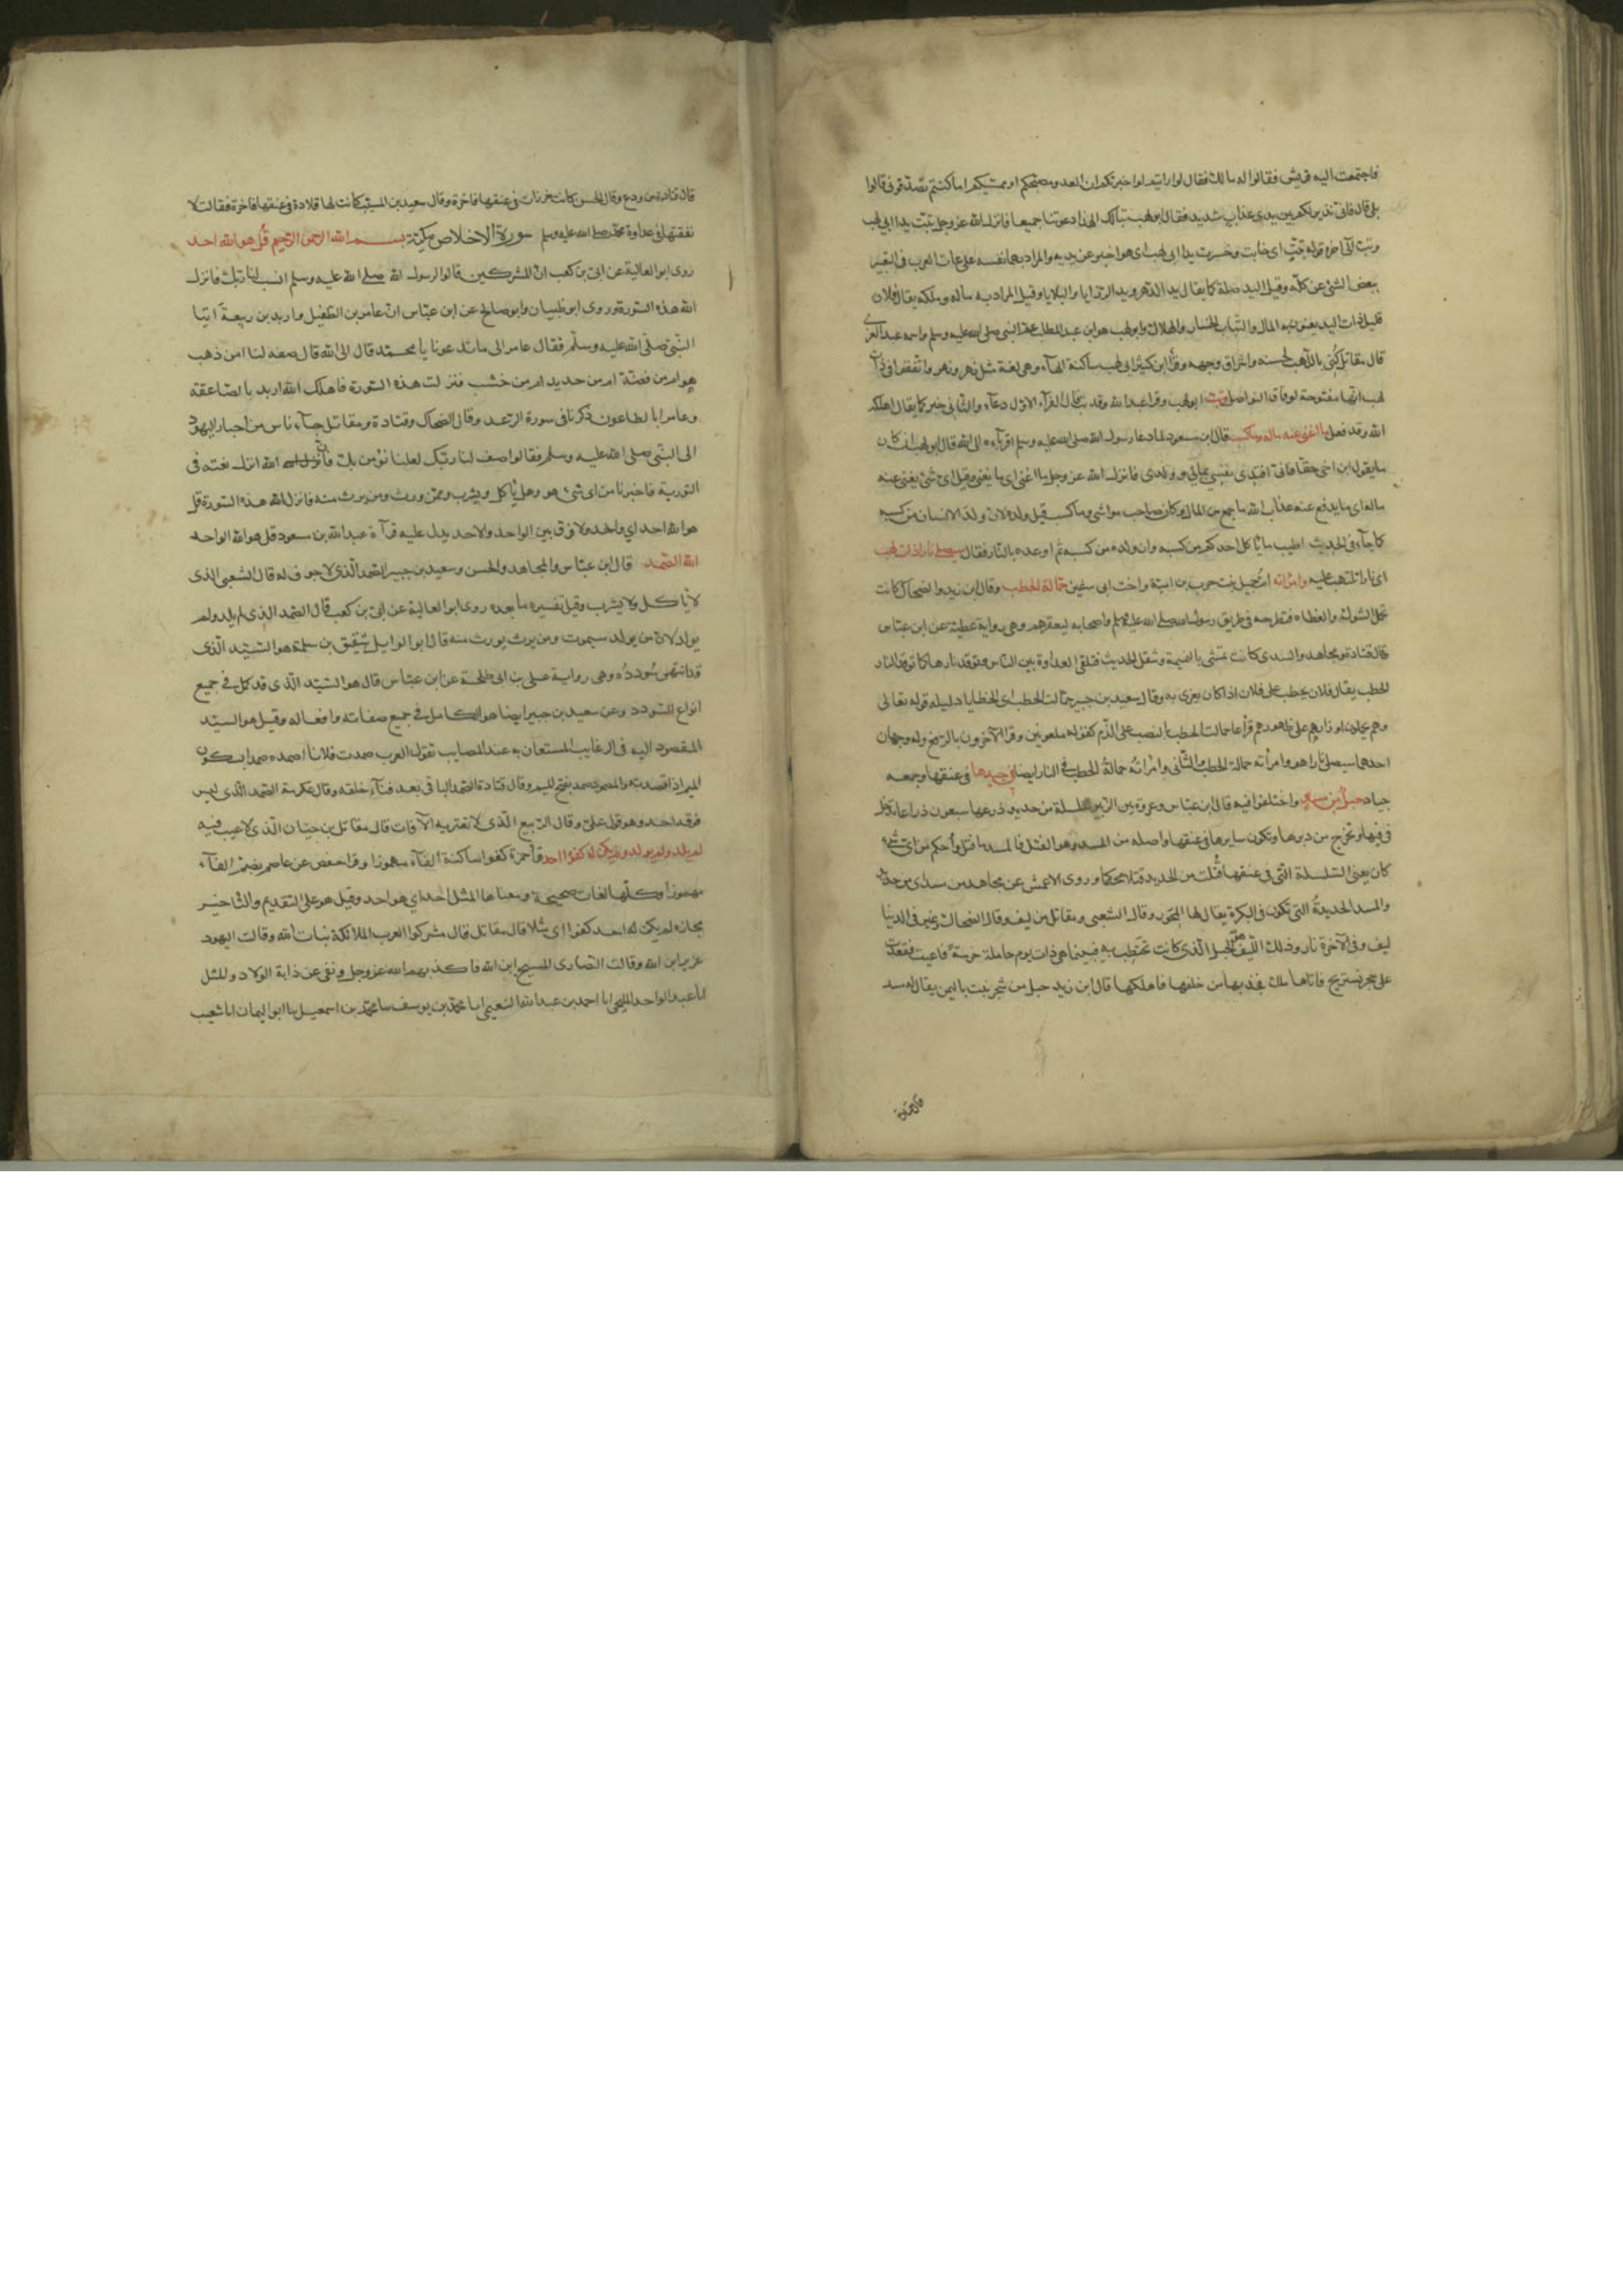 فاجتمعت اليه قريش فقالوا له مالك فقال لو ارايتم لو اخبرتكم ان العدو مصبحكم او ممسيكم اما كنتم تصدقوني قالوا
بلى قال فاني نذير لكم بين يدي عذاب شديد فقال ابو لهب تبا لك الهذا دعوتنا جميعا فانزل الله عز وجل تبت يدا ابي لهب
وتب الى اخره قوله تبت اي خابت وخسرت يدا ابي لهب اي هو اخبر عن يديه والمراد به نفسه على عادة العرب في التعبير
ببعض الشئ عن كله وقيل اليد صلة كما يقال يد الدهر ويد الرزايا والبلايا وقيل المراد به ماله وملكه يقال فلان
قليل ذات اليد يعنون به المال والتباب الخسار والهلاك وابو لهب هو ابن عبد المطلب عم النبي صلى الله عليه وسلم واسمه عبد العزى
قال مقاتل كني بابي لهب لحسنه واشراق وجهه وقرأ ابن كثير ابي لهب ساكنة الهاء وهي لغة مثل نهر ونهر واتفقوا في ذات
لهب انها مفتوحة لوفاق الفواصل وتب ابو لهب وقرأ عبد الله وقد تب قال الفراء الاول دعاء والثاني خبر كما يقال اهلكه
الله وقد فعل ما اغنى عنه ماله وما كسب قال ابن مسعود لما دعا رسول الله صلى الله عليه وسلم اقرباءه الى الله قال ابو لهب ان كان
ما يقول ابن اخي حقا فاني افتدي نفسي بمالي وولدي فانزل الله عز وجل ما اغنى اي ما يغني وقيل اي شئ يغني عنه
ماله اي ما يدفع عنه عذاب الله ما جمع من المال وكان صاحب مواشي وما كسب قيل ولده لان ولد الانسان من كسبه
كما جاء في الحديث اطيب ما ياكل احدكم من كسبه وان ولده من كسبه ثم اوعده بالنار فقال سيصلى نارا ذات لهب
اي نارا تلتهب عليه وامراته ام جميل بنت حرب بن امية واخت ابي سفين حمالة الحطب وقال ابن زيد والضحاك كانت
تحمل الشوك والعضاه فتطرحه في طريق رسول الله صلى الله عليه وسلم واصحابه ليعقرهم وهي رواية عطية عن ابن عباس
قال قتادة ومجاهد والسدي كانت تمشي بالنميمة وتنقل الحديث فتلقي العداوة بين الناس وتوقد نارها كما توقد النار
الحطب يقال فلان يحطب على فلان اذا كان يغري به وقال سعيد بن جبير حمالت الحطب اي الخطايا دليله قوله تعالى
وهم يحملون اوزارهم على ظهورهم قرأ عاصم حمالت الحطب بالنصب على الذم كقوله ملعونين وقرأ الآخرون بالرفع وله وجهان
احدهما سيصلى نارا هو وامرأته حمالة الحطب والثاني وامراته حمالة الحطب في النار ايضا في جيدها في عنقها وجمعه
جياد حبل من مسد واختلفوا فيه قال ابن عباس وعروة بن الزبير سلسلة من حديد ذرعها سبعون ذراعا تدخل
في فيها وتخرج من دبرها وتكون سايرها في عنقها واصله من المسد وهو الفتل فالمسد ما فتل واحكم من اي شئ
كان يعني السلسلة التي في عنقها فتلت من الحديد فتلا محكما وروى الاعمش عن مجاهد من مسد اي من حديد
والمسد الحديدة التي تكون في البكرة يقال لها المحور وقال الشعبي ومقاتل من ليف وقال الضحاك وغيره في الدنيا
ليف وفي الآخرة نار وذلك الليف هو الحبل الذي كانت تحتطب به فبينما هي ذات يوم حاملة حزمة فاعيت فقعدت
على حجر تستريح فاتاها ملك فجذبها من خلفها فاهلكها قال ابن زيد حبل من شجر ينبت باليمن يقال له مسد
قال قتادة
قال قتادة من ودع وقال الحسن كانت خرزات في عنقها فاخرة وقال سعيد بن المسيب كانت لها قلادة في عنقها فاخرة فقالت لا
نفقنها في عداوة محمد صلى الله عليه وسلم سورة الاخلاص مكية بسم الله الرحمن الرحيم قل هو الله احد
روى ابو العالية عن ابي بن كعب ان المشركين قالوا لرسول الله صلى الله عليه وسلم انسب لنا ربك فانزل
الله هذه السورة وروى ابو ظبيان وابو صالح عن ابن عباس ان عامر بن الطفيل واربد بن ربيعة اتيا
النبي صلى الله عليه وسلم فقال عامر الى ما تدعونا يا محمد قال الى الله قال صفه لنا امن ذهب
هو ام من فضة ام من حديد ام من خشب فنزلت هذه السورة فاهلك الله اربد بالصاعقة
وعامرا بالطاعون ذكرنا في سورة الرعد وقال الضحاك وقتادة ومقاتل جاء ناس من احبار اليهود
الى النبي صلى الله عليه وسلم فقالوا صف لنا ربك لعلنا نؤمن بك فان الله انزل نعته في
التورية فاخبرنا من اي شئ هو وهل ياكل ويشرب وممن ورث ومن يورث منه فانزل الله هذه السورة قل
هو الله احد اي واحد ولا فرق بين الواحد والاحد يدل عليه قرآءة عبد الله بن مسعود قل هو الله الواحد
الله الصمد قال ابن عباس والمجاهد والحسن وسعيد بن جبير الصمد الذي لا جوف له قال الشعبي الذي
لا ياكل ولا يشرب وقيل تفسيره ما بعده روى ابو العالية عن ابي بن كعب قال الصمد الذي لم يلد ولم
يولد لان من يولد سيموت ومن يرث يورث منه قال ابو الوايل شقيق بن سلمة هو السيد الذي
قد انتهى سودده وهي رواية علي بن ابي طلحة عن ابن عباس قال هو السيد الذي قد كمل في جميع
انواع السودد وعن سعيد بن جبير ايضا هو الكامل في جميع صفاته وافعاله وقيل هو السيد
المقصود اليه في الرغايب المستعان به عند المصايب تقول العرب صمدت فلانا اصمده صمدا بسكون
الميم اذا قصدته والمصمود صمد بفتح الميم وقال قتادة الصمد الباقي بعد فناء خلقه وقال عكرمة الصمد الذي ليس
فوقه احد وهو قول علي وقال الربيع الذي لا تعتريه الآفات قال مقاتل بن حيان الذي لا عيب فيه
لم يلد ولم يولد ولم يكن له كفوا احد قرأ حمزة كفوا ساكنة الفاء مهموزا وقرأ حفص عن عاصم بضم الفاء
مهموزا وكلها لغات صحيحة ومعناها المثل احد اي هو احد وقيل هو على التقديم والتاخير
مجازه لم يكن له احد كفوا اي مثلا قال مقاتل قال مشركوا العرب الملائكة بنات الله وقالت اليهود
عزير ابن الله وقالت النصارى المسيح ابن الله فاكذبهم الله عز وجل ونفى عن ذاته الولاد والمثل
انا عبد الواحد المليحي انا احمد بن عبد الله النعيمي انا محمد بن يوسف نا محمد بن اسمعيل نا ابو اليمان انا شعيب